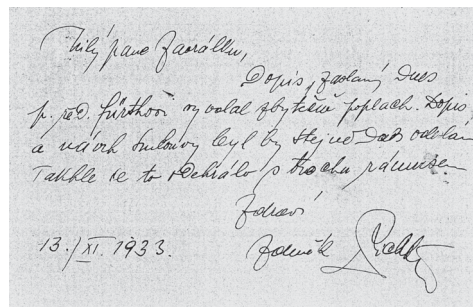 Milý pane Zaorálku,
Dopis, zaslaný Dnes
p. řed. Fürthovi vyvolal zbytečně poplach. Dopis
a návrh smlouvy byl by stejně Dnes odeslán
Takhle se to odehrálo s trochu rámusem
Zdraví
13./XI. 1933. Zdeněk